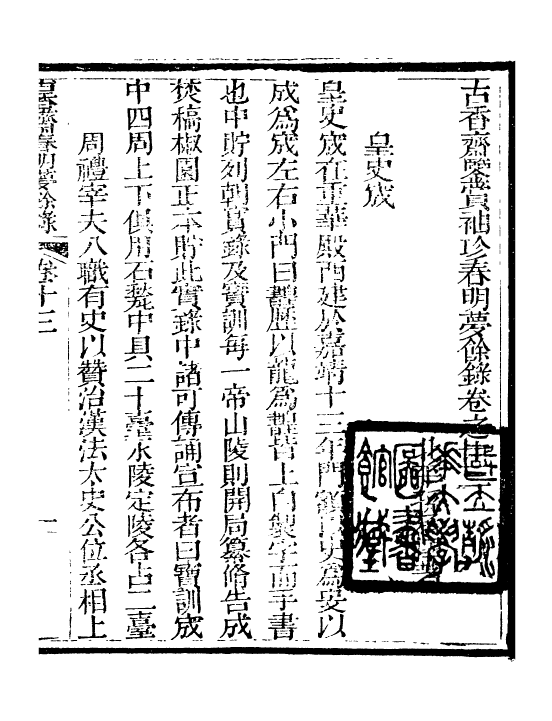 古香齋鑒賞袖珍春明夢餘錄卷之
皇史宬
皇史宬在重華殿西建於嘉靖十三年門額以史為㕝以
成為宬左右小門曰䶬歷以龍為䶬皆上自製字而手書
也中貯列朝實錄及寶訓每一帝山陵則開局纂修告成
焚稿椒園正本貯此實錄中諸可傳誦宣布者曰寶訓宬
中四周上下俱用石甃中具二十臺永陵定陵各占二臺
周禮宰夫八職有史以贊治漢法太史公位丞相上
古香齋春明夢餘錄 卷十三 一